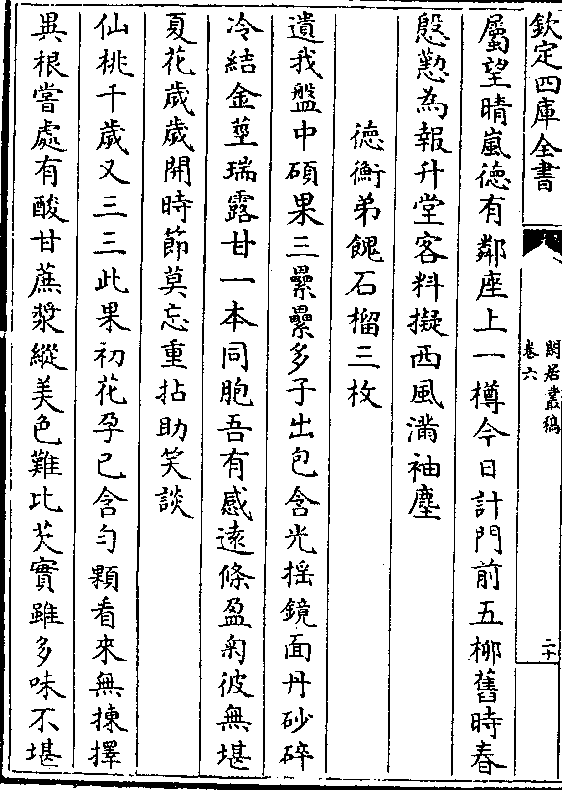 欽定四庫全書
閒居叢稿
卷六
二十
屬望晴嵐徳有鄰座上一樽今日計門前五栁舊時春
慇懃為報升堂客料擬西風滿袖塵
徳衡弟餽石榴三枚
遺我盤中碩果三纍纍多子出包含光揺鏡面丹砂碎
冷結金莖瑞露甘一本同胞吾有感逺條盈匊彼無堪
夏花歲歲開時節莫忘重拈助笑談
仙桃千歲又三三此果初花孕已含勻顆看來無揀擇
異根嘗處有酸甘蔗漿縱美色難比芡實雖多味不堪